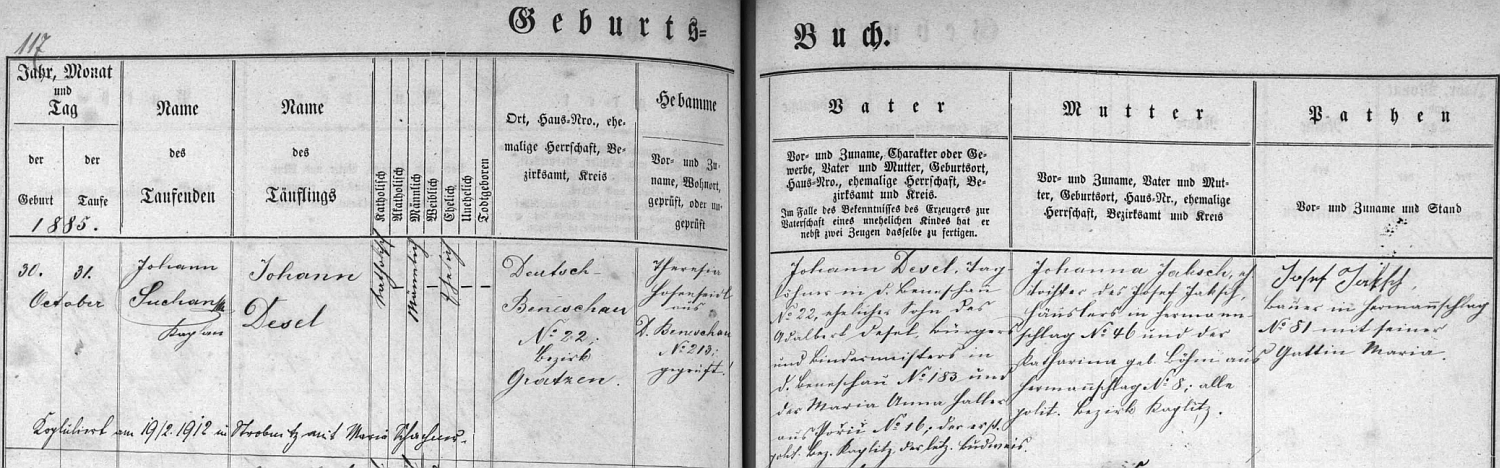 117
Geburts=
Buch.
Jahr, Monat
und
Tag
der
Geburt
der
Taufe
1885.
Name
des
Taufenden
Name
des
Täuflings
Katholisch
Akatholisch
Männlich
Weiblich
Ehelich
Unehelich
Todtgeboren
Ort, Haus-Nro., ehe-
malige Herrschaft, Be-
zirksamt, Kreis
Hebamme
Vor- und Zu-
name, Wohnort,
geprüft, oder un-
geprüft
Vater
Vor- und Zuname, Charakter oder Ge-
werbe, Vater und Mutter, Geburtsort,
Haus-Nro., ehemalige Herrschaft, Be-
zirksamt und Kreis.
Im Falle des Bekenntnisses des Erzeugers zur
Vaterschaft eines unehelichen Kindes hat er
nebst zwei Zeugen dasselbe zu fertigen.
Mutter
Vor- und Zuname, Vater und Mut-
ter, Geburtsort, Haus-Nr., ehemalige
Herrschaft, Bezirksamt und Kreis
Pathen
Vor- und Zuname und Stand
30. 31.
October
Johann
Kaplan
Johann
Desel
katholisch
Männlich
–
Ehelich
–
–
Deutsch-
Beneschau
No 22,
Bezirk
Gratzen.
Theresia
aus
D. Beneschau
No 213;
geprüft!
Johann Desel, Tag-
löhner in d. Beneschau
No 22, ehelicher Sohn des
Adalbert Desel, Bürgers
und Bindermeisters in
d. Beneschau No 183 und
der Maria Anna Haller
aus No 16;
polit. Bez. Kaplitz, der letz. Budweis.
Johanna Jaksch, eh.
Tochter des Josef Jaksch,
Häuslers in Hermann-
schlag No 46 und der
Katharina geb. Böhm aus
Hermannschlag No 8; alle
polit. Bezirk Kaplitz.
Josef Jaksch,
Bauer in Hermannschlag
No 81 mit seiner
Gattin Maria.
Kopuliert am 19/2. 1912 in Strobnitz mit Maria